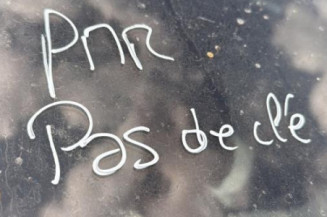 PNR
Pas de clé